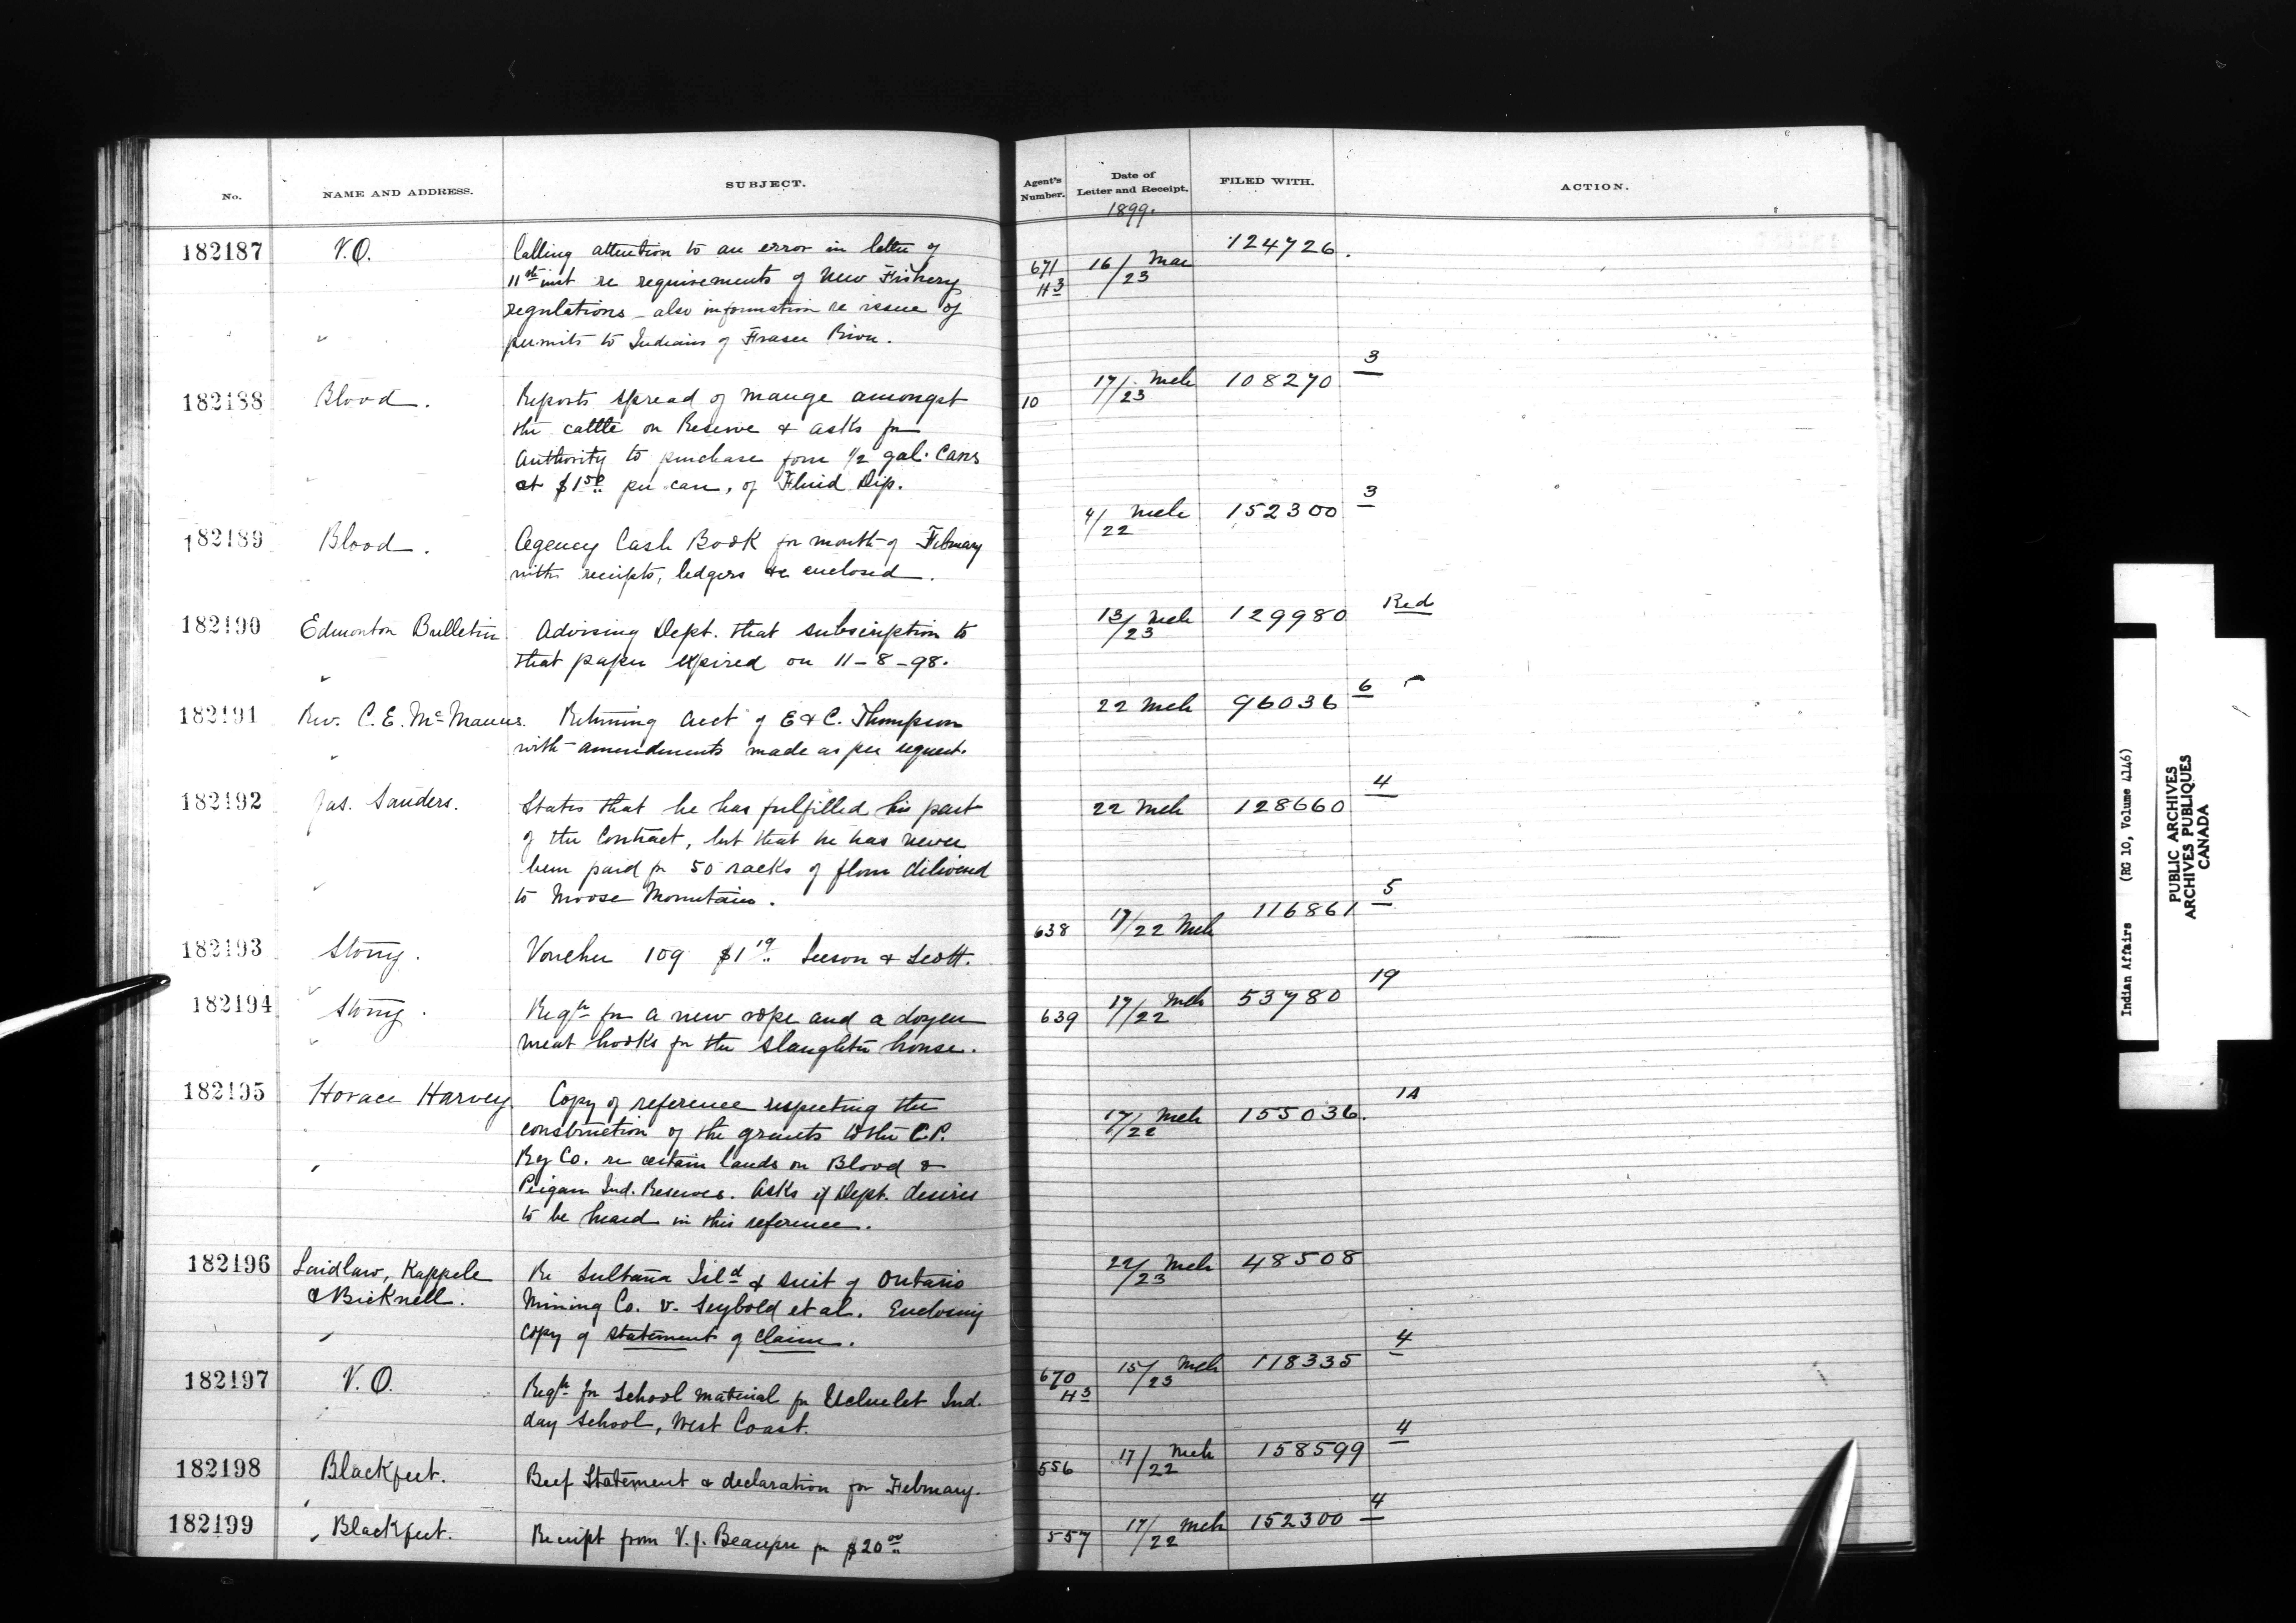 No.
NAME AND ADDRESS.
SUBJECT.
Agent's Number.
Date of Letter and Receipt.
FILED WITH.
ACTION.
1899.
182187 V.O. Calling attention to an error in letter of 671 16/23 Mar 124726.
11th inst re requirements of New Fishery H3
regulations - also information re issue of
permits to Indians of Fraser River.
182188 Blood. Reports spread of mange amongst 10 17/23 Mch 108270 3
the cattle on Reserve & asks for
authority to purchase four 1/2 gal. cans
at $1.50 per can, of Fluid Dip.
182189 Blood. Agency Cash Book for month of February 4/22 Mch 152300 3
with receipts, ledgers &c enclosed.
182190 Edmonton Bulletin Advising Dept. that subscription to 13/23 Mch 129980 Red
that paper expired on 11-8-98.
182191 Rev. C. E. McManus. Returning acct of E & C. Thompson 22 Mch 96036 6
with amendments made as per request.
182192 Jas. Sanders. States that he has fulfilled his part 22 Mch 128660 4
of the contract, but that he has never
been paid for 50 sacks of flour delivered
to Moose Mountain.
182193 Stony. Voucher 109 $1.19 Leeson & Scott. 638 17/22 Mch 116861 5
182194 Stony. Reqn for a new rope and a dozen 639 17/22 Mch 53780 19
meat hooks for the slaughter house.
182195 Horace Harvey. Copy of reference respecting the 17/22 Mch 155036. 1A
construction of the grants to the C.P.
Ry Co. re certain lands on Blood &
Peigan Ind. Reserves. Asks if Dept. desires
to be heard in this reference.
182196 Laidlaw, Kappele Re Sultana Isld & suit of Ontario 22/23 Mch 48508
& Bicknell. Mining Co. v. Seybold et al. Enclosing
copy of statement of claim.
182197 V.O. Reqn for School material for Ucluelet Ind. 670 15/23 Mch 118335 4
day school, West Coast. H3
182198 Blackfeet. Beef Statement & declaration for February. 556 17/22 Mch 158599 4
182199 Blackfeet. Receipt from V. J. Beaupre for $20.00 557 17/22 Mch 152300 4
Indian Affairs (RG 10, Volume 4146)
PUBLIC ARCHIVES
ARCHIVES PUBLIQUES
CANADA